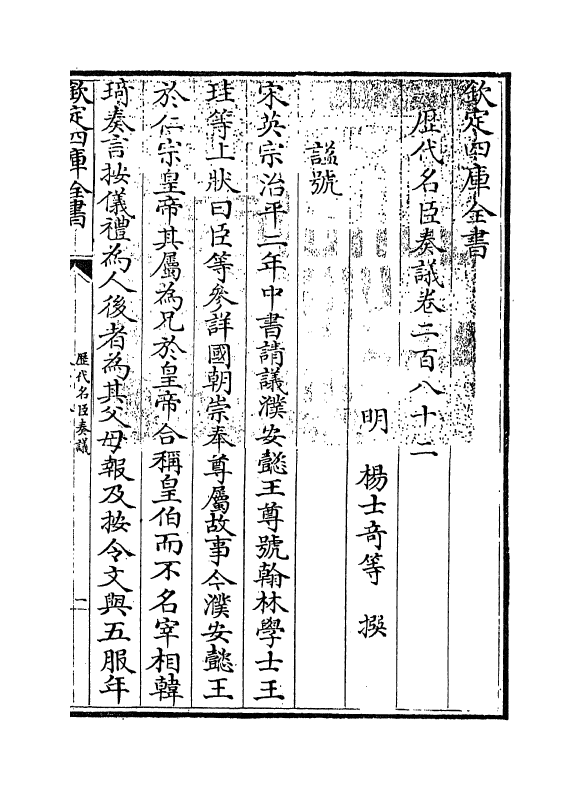 欽定四庫全書
歴代名臣奏議卷二百八十二
明　楊士竒等　撰
諡號
宋英宗治平二年中書請議濮安懿王尊號翰林學士王
珪等上狀曰臣等參詳國朝崇奉尊屬故事今濮安懿王
於仁宗皇帝其屬為兄於皇帝合稱皇伯而不名宰相韓
琦奏言按儀禮為人後者為其父母報及按令文與五服年
欽定四庫全書
歴代名臣奏議